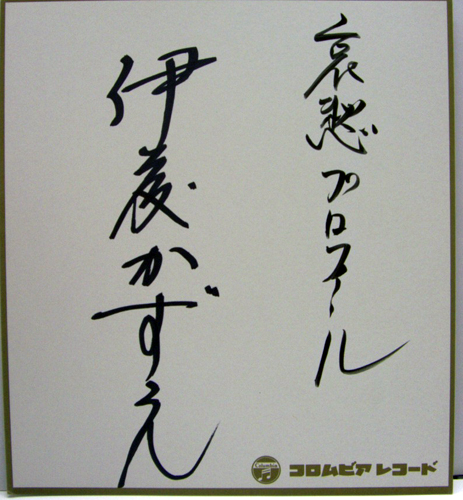 哀愁プロフィール
伊藤かずえ
Columbia
コロムビアレコード